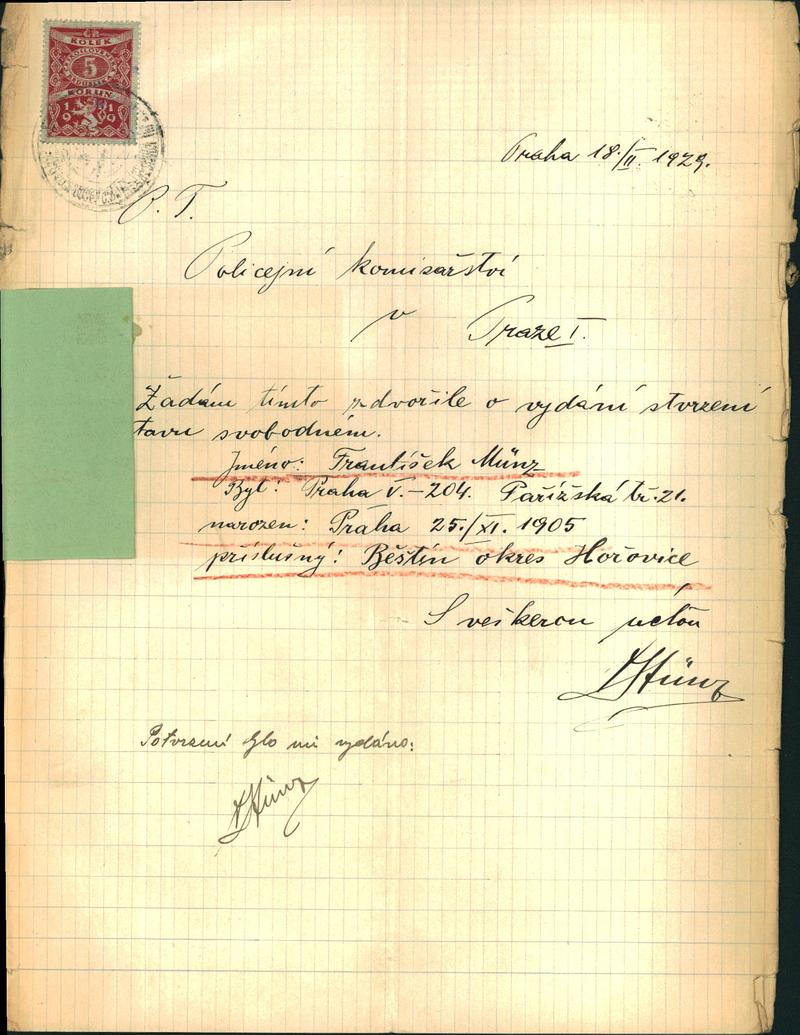 KOLEK
5
KORUN
1919
Praha 18./II. 1929.
P. T.
Policejní komisařství
v Praze I.
Žádám tímto zdvořile o vydání stvrzení
stavu svobodném.
Jméno: František Münz
Byt: Praha V.–204. Pařížská tř. 21.
narozen: Praha 25./XI. 1905
příslušný: Běštín okres Hořovice
S veškerou úctou
Münz
Potvrzení bylo mi vydáno:
Münz